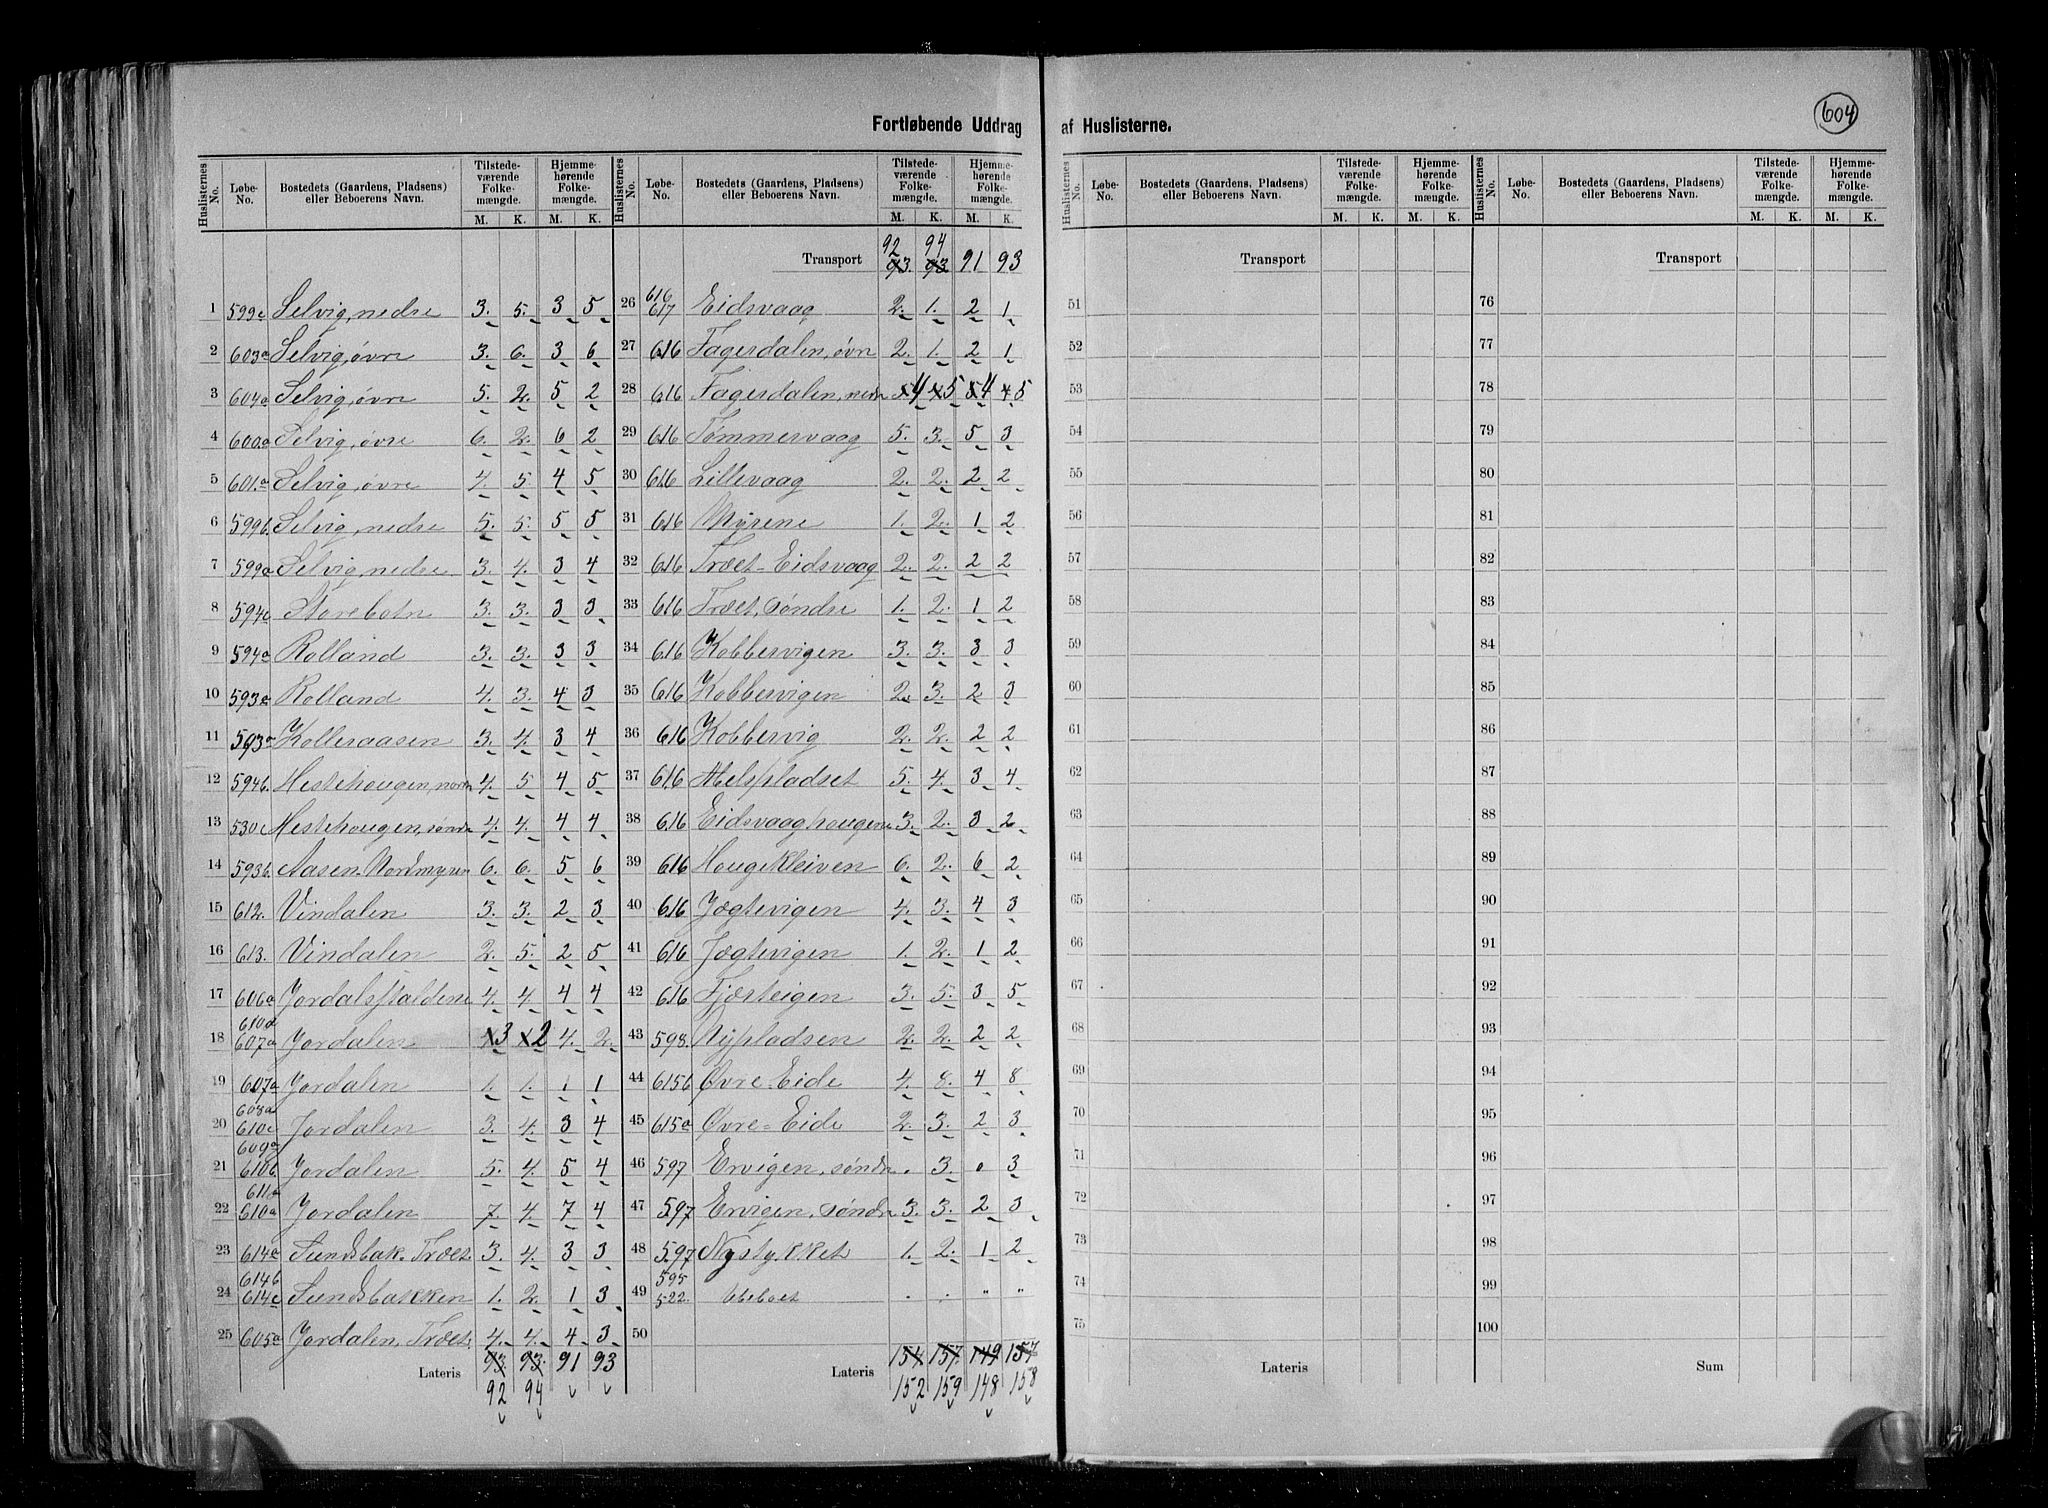 604
Fortløbende Uddrag af Huslisterne.
Huslisternes No. Løbe-No. Bostedets (Gaardens, Pladsens) eller Beboerens Navn. Tilstedeværende Folkemængde. M. K. Hjemmehørende Folkemængde. M. K.
1 599c Selvig, nedre 3. 5. 3 5
2 603a Selvig, øvre 3. 6. 3 6
3 604a Selvig, øvre 5. 2. 5 2
4 600a Selvig, øvre 6. 2. 6 2
5 601.a Selvig, øvre 4. 5. 4 5
6 599b. Selvig, nedre 5. 5. 5 5
7 599a Selvig, nedre 3. 4. 3 4
8 594c Storebotn 3. 3. 3 3
9 594a Rolland 3. 3. 3 3
10 593c Rolland 4. 3. 4 3
11 593a Kolleraasen 3. 4. 3 4
12 594b. Hestehougen, nordre 4. 5 4 5
13 530c Hestehougen, søndre 4. 4. 4 4
14 593b. Aasen Nordmyren 6. 6. 5 6
15 612. Vindalen 3. 3. 2 3
16 613. Vindalen 2. 5. 2 5
17 606a Jordalsfaldene 4. 4. 4 4
18 610d 607a Jordalen 3 2 4. 2.
19 607a Jordalen 1. 1. 1 1
20 608a 610c Jordalen 3. 4. 3 4
21 609a 610b. Jordalen 5. 4. 5 4
22 611a 610a Jordalen 7. 4. 7 4
23 614a Sundsbak. Træet 3. 4. 3 3
24 614b 614c Sundsbakken 1. 2. 1 3
25 605a Jordalen, Træet. 4. 4. 4 3
Lateris 93. 93. 91 93
92 94
Huslisternes No. Løbe-No. Bostedets (Gaardens, Pladsens) eller Beboerens Navn. Tilstedeværende Folkemængde. M. K. Hjemmehørende Folkemængde. M. K.
92 94
Transport 93. 93. 91 93
26 616 617 Eidsvaag 2. 1. 2 1
27 616 Fagerdalen, øvre 2. 1. 2 1
28 616 Fagerdalen, nedre 5 4 4 5 5 4 4 5
29 616 Tømmervaag 5. 3. 5 3
30 616 Lillevaag 2. 2. 2 2
31 616 Myrene 1. 2. 1 2
32 616 Træet-Eidsvaag 2. 2. 2 2
33 616 Træet, søndre 1. 2. 1 2
34 616 Kobbervigen 3. 3. 3 3
35 616 Kobbervigen 2. 3. 2 3
36 616 Kobbervig 2. 2. 2 2
37 616 Melspladset 5. 4. 3 4
38 616 Eidsvaaghougen 3. 2. 3 2
39 616 Hougekleiven 6. 2. 6 2
40 616 Jægtevigen 4. 3. 4 3
41 616 Jægtevigen 1. 2. 1 2
42 616 Fjæsteigen 3. 5. 3 5
43 598. Nypladsen 2. 2. 2 2
44 615b Øvre-Eide 4. 8. 4 8
45 615a Øvre-Eide 2. 3. 2 3
46 597 Ervigen, søndre . 3. 0 3
47 597 Ervigen, søndre 3. 3. 2 3
48 597 Nystykket 1. 2. 1 2
49 595 522. Ubeboet . . " "
50
Lateris 154. 157. 149 157
152 159 148 158
Huslisternes No. Løbe-No. Bostedets (Gaardens, Pladsens) eller Beboerens Navn. Tilstedeværende Folkemængde. M. K. Hjemmehørende Folkemængde. M. K.
Transport
51
52
53
54
55
56
57
58
59
60
61
62
63
64
65
66
67
68
69
70
71
72
73
74
75
Lateris
Huslisternes No. Løbe-No. Bostedets (Gaardens, Pladsens) eller Beboerens Navn. Tilstedeværende Folkemængde. M. K. Hjemmehørende Folkemængde. M. K.
Transport
76
77
78
79
80
81
82
83
84
85
86
87
88
89
90
91
92
93
94
95
96
97
98
99
100
Sum